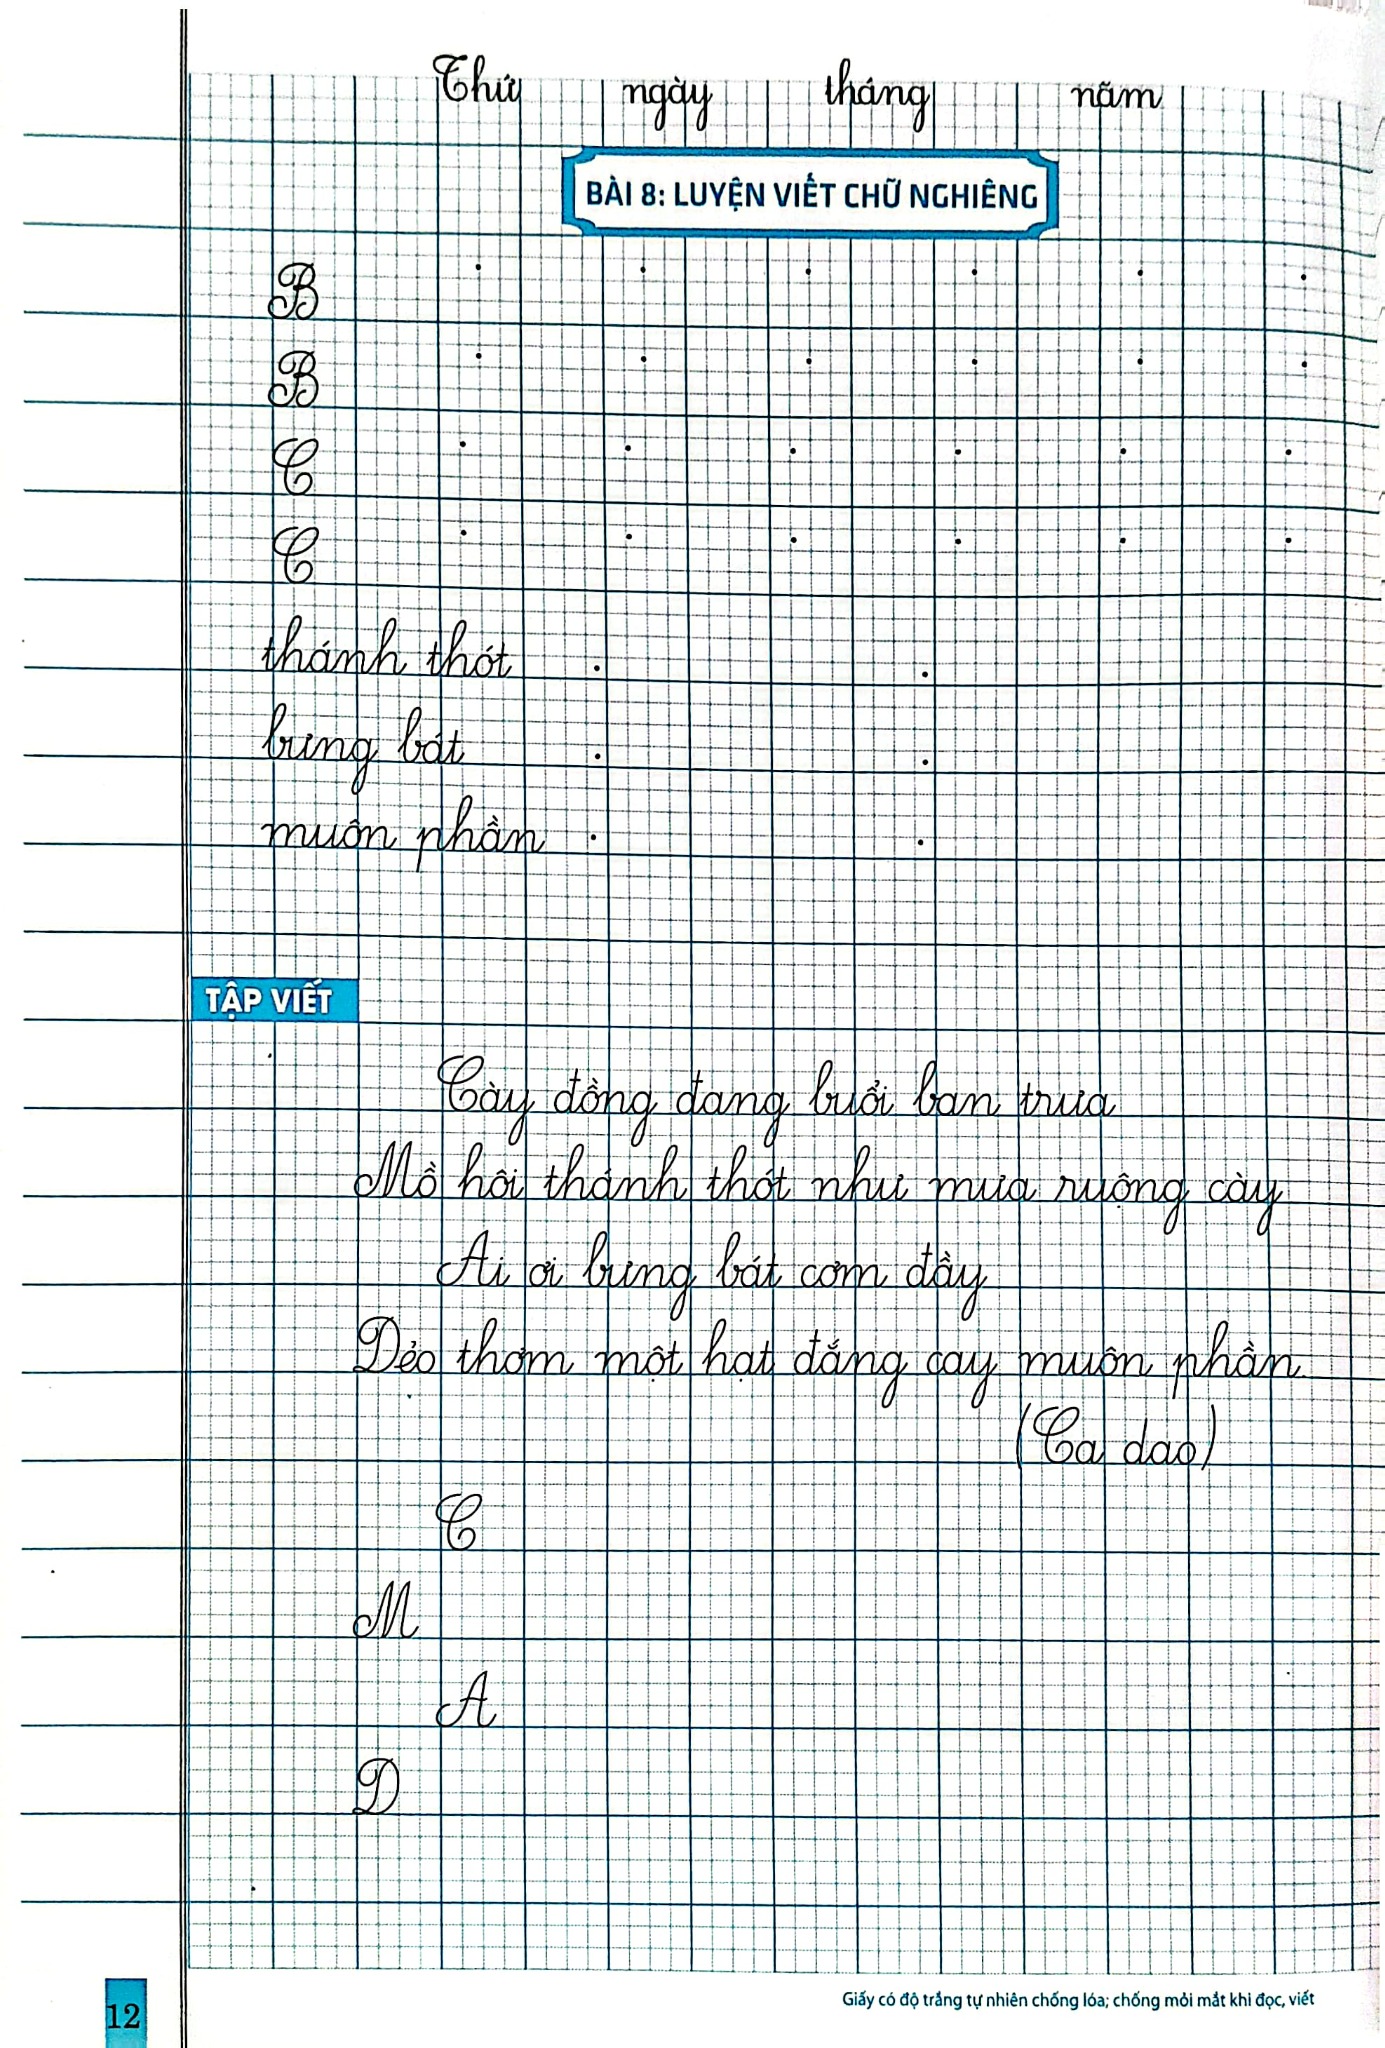 Thứ ngày tháng năm
BÀI 8: LUYỆN VIẾT CHỮ NGHIÊNG
B
B
C
C
thánh thót
bưng bát
muôn phần
TẬP VIẾT
Cày đồng đang buổi ban trưa
Mồ hôi thánh thót như mưa ruộng cày
Ai ơi bưng bát cơm đầy
Dẻo thơm một hạt đắng cay muôn phần.
(Ca dao)
C
M
A
D
Giấy có độ trắng tự nhiên chống lóa; chống mỏi mắt khi đọc, viết
12